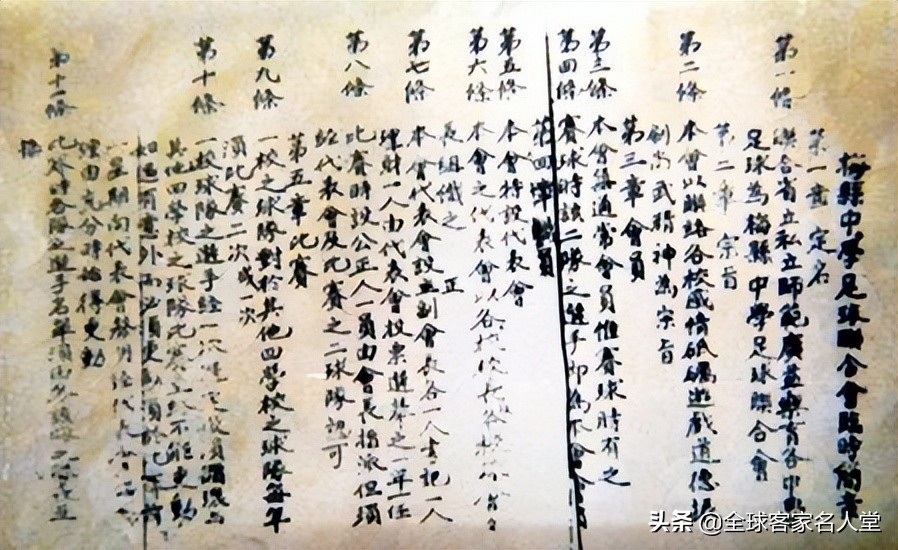 梅縣中學足球聯合會臨時簡章
第一章 定名
第一條 聯合省立私立師範廣益樂育各中學
足球為梅縣中學足球聯合會
第二章 宗旨
第二條 本會以聯絡各校感情砥礪遊戲道德振
刷尚武精神為宗旨
第三章 會員
第三條 本會無通常會員惟賽球時有之
第四條 賽球時該二隊之選手即為本會會員
第四章 職員
第五條 本會特設代表會
第六條 本會之代表會以各校校長各校球
長組織之
第七條 本會代表會設正副會長各一人書記一人
理財一人由代表會投票選舉之一年一任
第八條 比賽時設公正人一員由會長指派但須
經代表會及比賽之二球隊認可
第五章 比賽
第九條 一校之球隊對於其他四學校之球隊每年
須比賽二次或一次
第十條 一校球隊之選手經一次
其他四學校之球隊比賽上不能更動
如遇有意外而必須更動須於比賽前
一星期向代表會發明經代表會
理由充分時始得更動
第十一條 比賽時各隊之選手名單須由
頭条 @全球客家名人堂